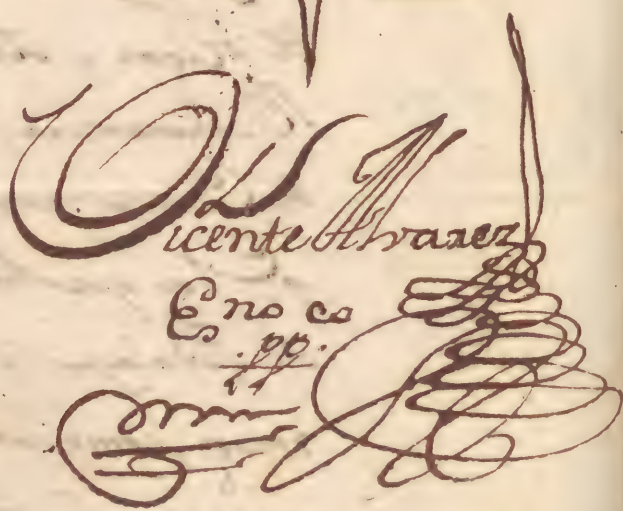 Vicente Alvarez
Esno co
pp.